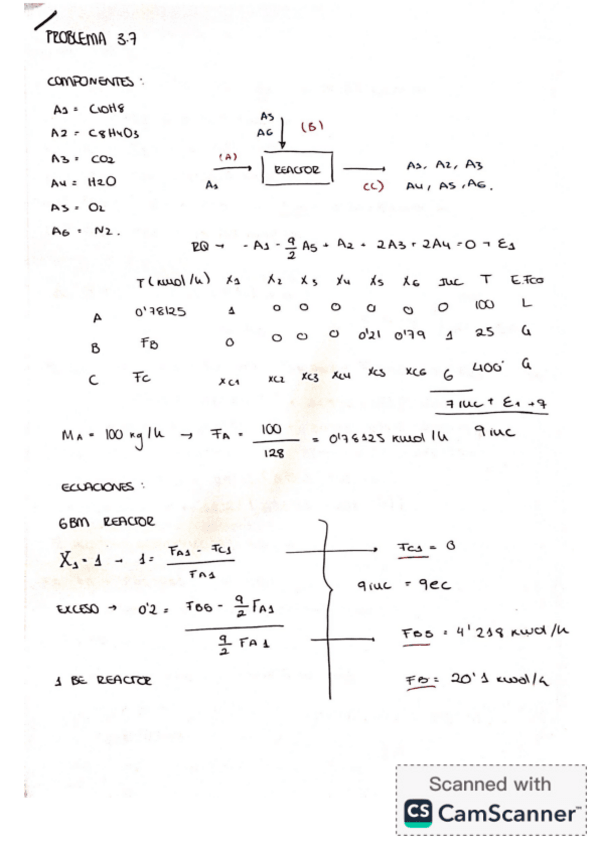 PROBLEMA 3.7
COMPONENTES:
A1 = C10H8
A2 = C8H4O3
A3 = CO2
A4 = H2O
A5 = O2
A6 = N2.
A5
A6 (B)
(A)
A1
REACTOR
(C)
A1, A2, A3
A4, A5, A6.
RQ → - A1 - 9/2 A5 + A2 + 2A3 + 2A4 = 0 → ε1
F (kmol/h) X1 X2 X3 X4 X5 X6 INC T E.FCO
A 0'78125 1 0 0 0 0 0 0 100 L
B FB 0 0 0 0 0'21 0'79 1 25 G
C FC XC1 XC2 XC3 XC4 XC5 XC6 6 400 G
7 inc + ε1 + q
9 inc
MA = 100 kg/h → FA = 100/128 = 0'78125 kmol/h
ECUACIONES:
6 BM REACTOR
X1 = 1 → 1 = FA1 - FC1 / FA1
FC1 = 0
9 inc = 9 ec
EXCESO → 0'2 = FB5 - 9/2 FA1 / 9/2 FA1
FB5 = 4'218 kmol/h
1 BE REACTOR
FB = 20'1 kmol/h
Scanned with
CS CamScanner™